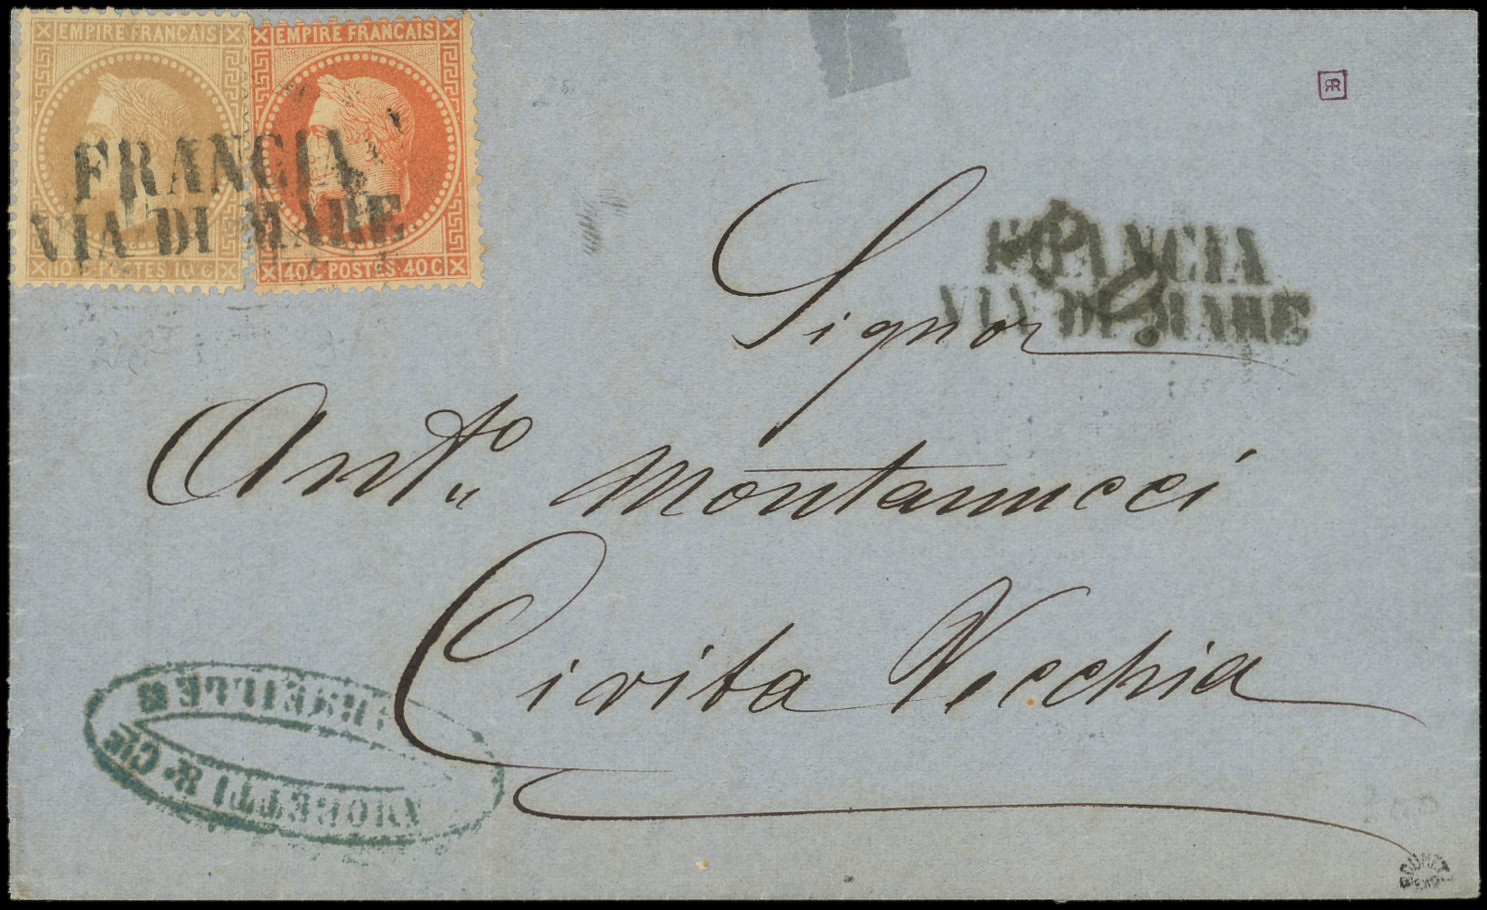 EMPIRE FRANCAIS
10 C. POSTES 10 C
EMPIRE FRANÇAIS
40 C. POSTES. 40 C
FRANCIA
VIA DI MARE
FRANCIA
VIA DI MARE
P.D.
RR
Signor
Ant.º Montanucci
Civita Vecchia
AMORETTI & CIE
MARSEILLE
ROUMET